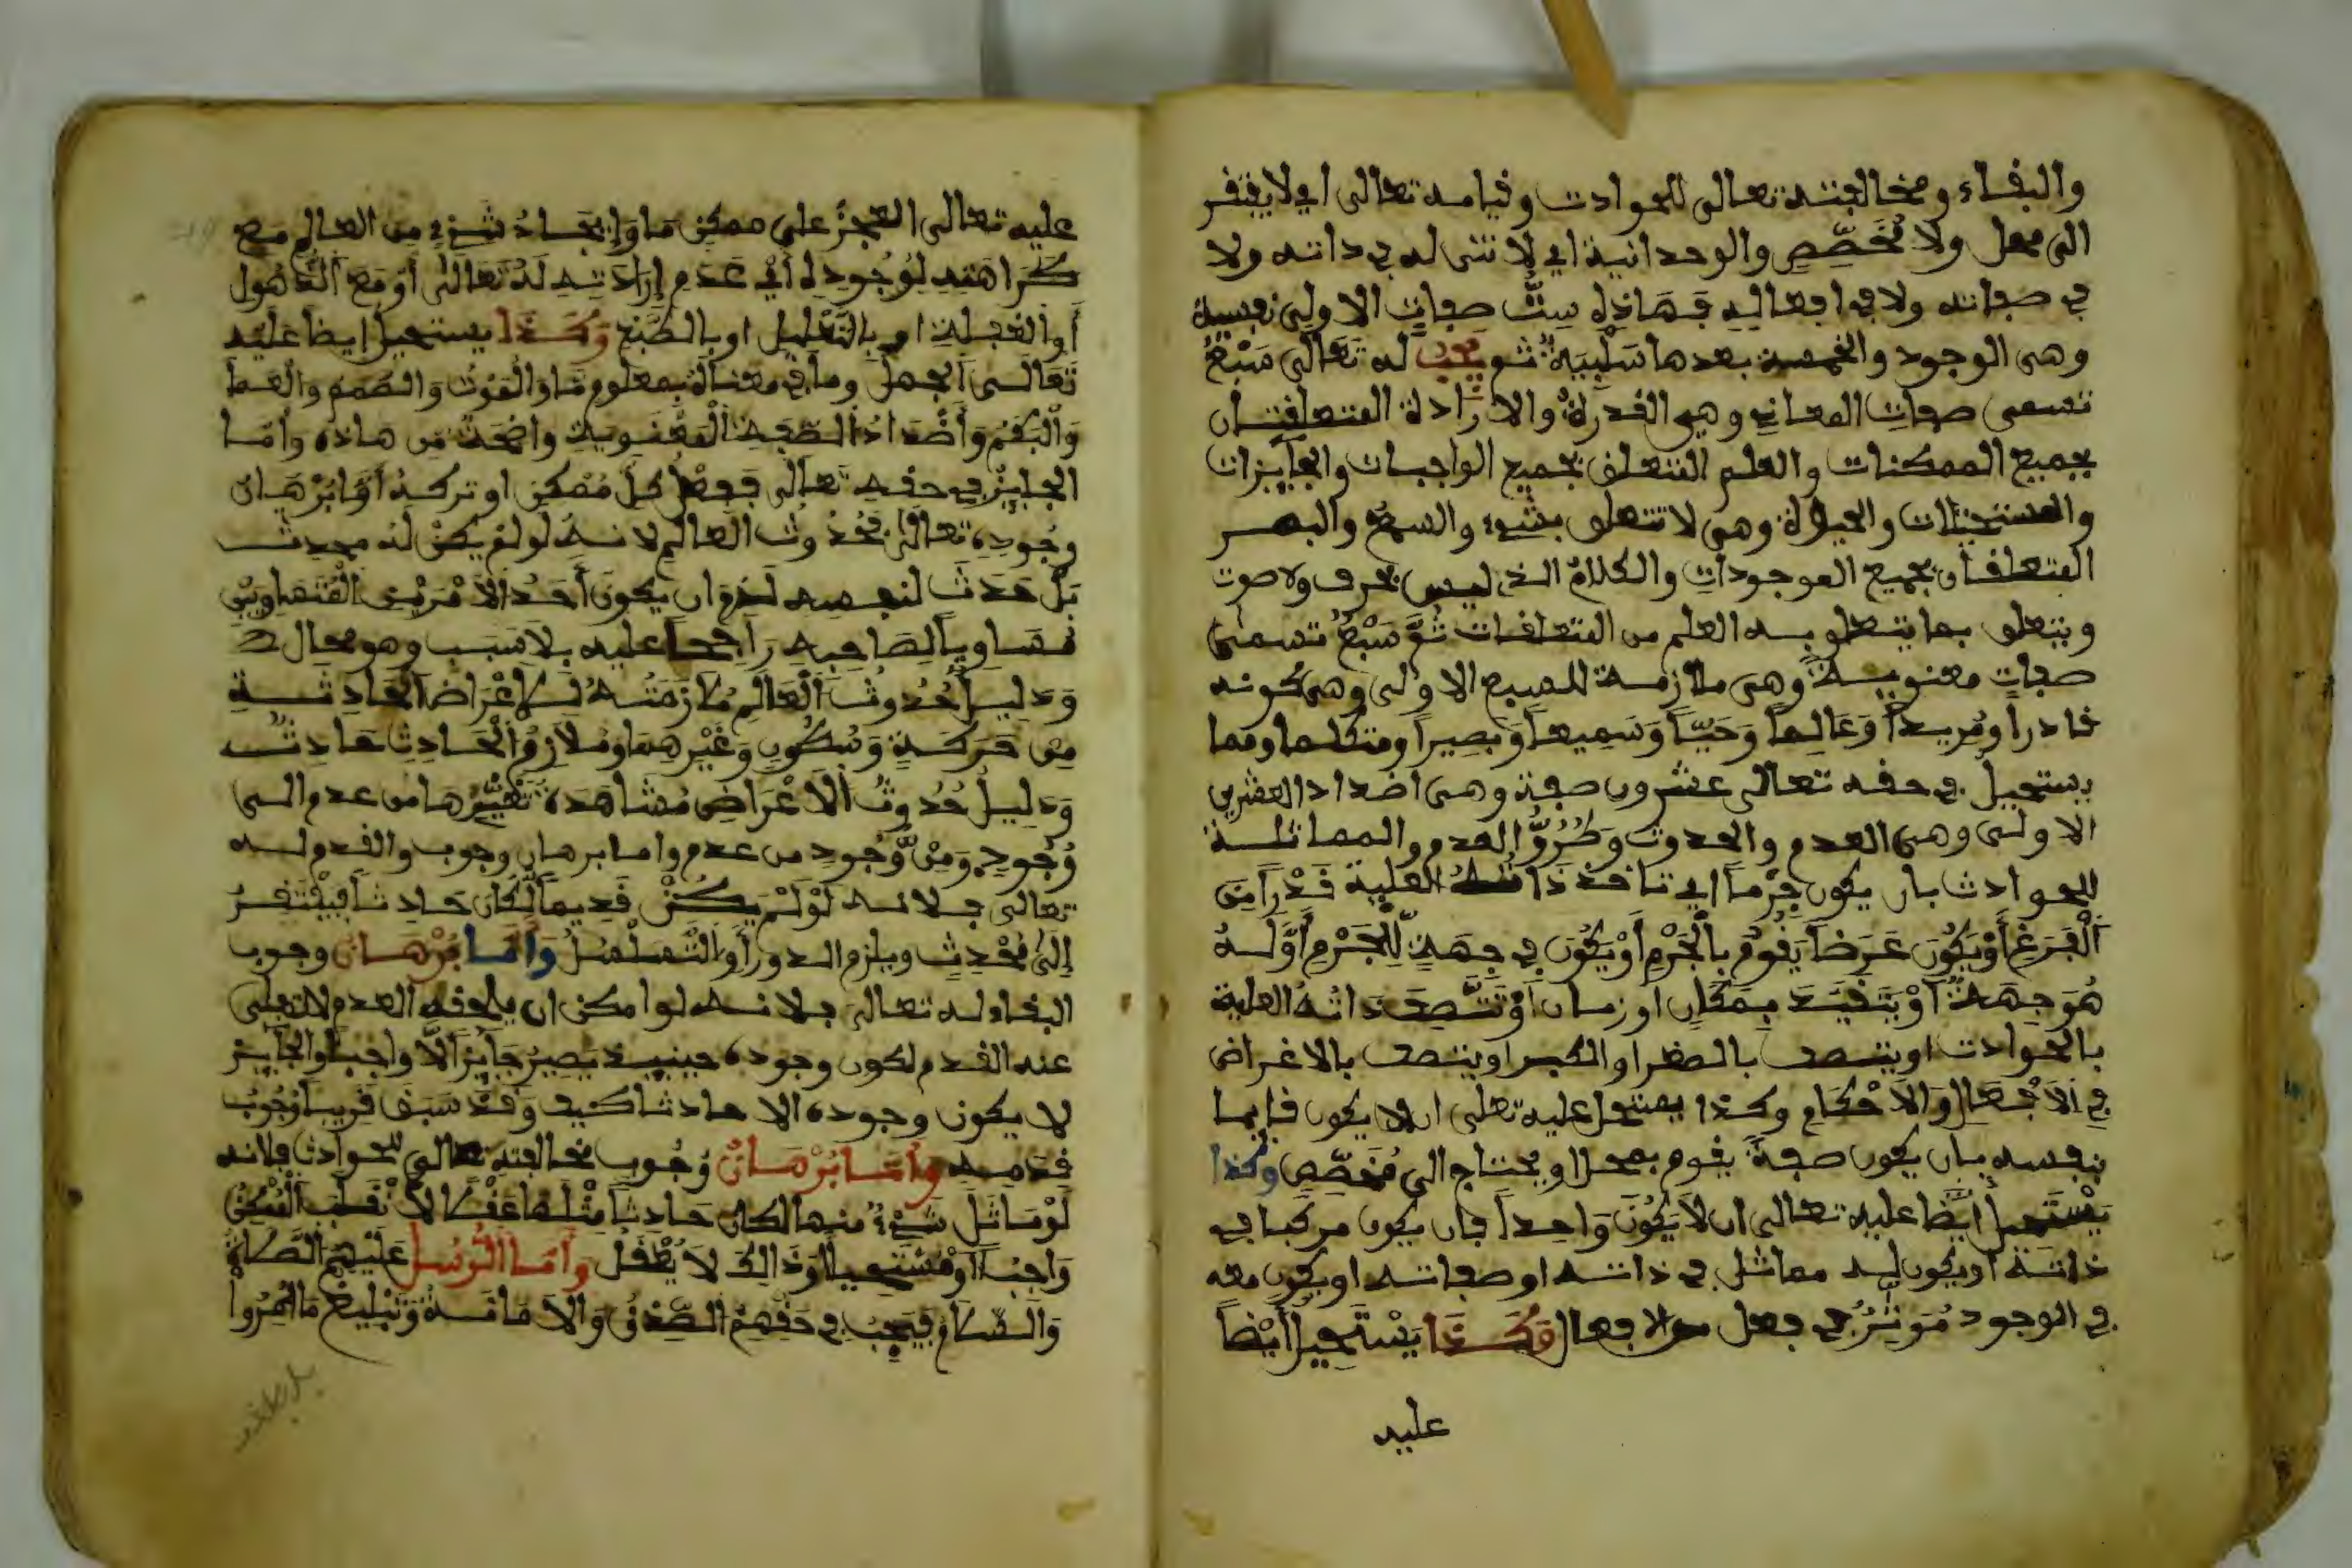 والبقاء ومخالفته تعالى للحوادث وقيامه تعالى اي لا يفتقر
الى محل ولا مُخَصِّصٍ والوحدانية اي لا ثنى له في ذاته ولا
في صفاته ولا في افعاله فهاذه سِتُّ صفاتٍ الاولى نفسية
وهى الوجود والخمسة بعدها سَلْبِيَةٌ ثم يجب له تَعَالَى سَبْعُ
تسمى صفاتِ المعاني وهي القدرةُ والارَادة المتعلقتان
بجميع الممكنات والعلم المتعلق بجميع الواجبات والجآيزات
والمستحيلات والحيوة وهى لا تتعلق بشيء والسمعُ والبصر
المتعلقان بجميع الموجوداتِ والكلامُ الذي ليس بحرف ولا صوت
ويتعلق بما يتعلق به العلم من المتعلقات ثُمَّ سَبْعُ تسمى
صفاتٍ معنوية وهى ملازمة للسبع الاولى وهى كونه
قادرا ومُريداً وَعَالِماً وَحَيّاً وَسَمِيعاً وَبَصِيراً ومتكلما ومما
يستحيل في حقه تعالى عشرون صفة وهى اضداد العشرين
الاولى وهى العدم والحدوث وَطُرُوُّ العدم والمماثلة
للحوادث بان يكون جِرْماً اي تاخذ ذاته العلية قَدْراً مِنَ
اَلْفَرَغِ أَوْ يَكُونَ عَرَضاً يَقُومُ بِالْجَرْمِ أَوْ يَكُونَ فِي جِهَةٍ لِّلْجَرْمِ أَوْ لَهُ
هُوَ جِهَةٌ أَوْ يَتَقَيَّدَ بِمَكَانٍ او زمان أَوْ تَتَّصِفَ ذاتُهُ العلية
بالحوادث او يتصف بالصغر او الكبر او يتصف بالاغراض
فِي اَلاَفْعَالِ وَالاَحْكَامِ وكذا يستحيل عليه تعلى ان لا يكون قايما
بنفسه بان يكون صفةً يقوم بمحل او يحتاج الى مُخَصِّصٍ وكذا
يَسْتَحِيلُ أَيْضًا عليه تعالى ان لاَ يَكُونَ وَاحِداً بان يكون مركبا في
ذاته او يكون له مماثل في ذاته او صفاته او يكون معه
في الوجود مُوَثِّرٌ في فعل من الافعال وَكَذَا يَسْتَحِيلُ أَيْضاً
عليه
عليه تعالى العجزُ على ممكن مَا وَإيجَادُ شَيْءٍ من العالم مع
كَرَاهَتِهِ لِوُجُودِهِ أَيْ عَدَمِ إِرَادَتِهِ لَهُ تَعَالَى أَوْ مَعَ الذُّهُولِ
أَوِ الغفلة او بالتَّعْلِيلِ او بالطَّبْعِ وَكَذَا يستحيل ايضا عليه
تَعَالَى الجهل وما في معناه بمعلوم مَا وَالْمَوْتُ وَالصَّمَمُ والْعَمَا
وَالْبَكَمُ وَأَضْدَادُ الصِّفَةِ الْمَعْنَوِيَةِ وَاضِحَةٌ مِن هاذه وأمّا
الجايزُ في حقه تعالى فَفِعْلُ كلّ مُمْكِنٍ او تركه أَمَّا بُرْهَان
وجُودِه تعالى فَحُدُوثُ العالم لانه لو لمْ يكنْ لَهُ محدث
بَلْ حَدَثَ لنفسه لَزم ان يكونَ أَحَدُ الاَمْرَيْنِ الْمُتَسَاوِيَيْنِ
مُسَاوِياً لِصَاحِبِهِ رَاجِحاً عليه بِلاَ سَبَبٍ وهو محال
وَدليل حُدُوثُ الْعَالَمِ مُلاَزَمَتُهُ لِلاَعْرَاضِ الْحَادِثَةِ
مِن حَرَكَةٍ وَسُكُونٍ وَغَيْرِهِمَا ومُلاَزِمُ الْحَادِثِ حَادِثٌ
وَدَلِيلُ حُدُوثُ اَلاَعْرَاضِ مُشَاهَدَة تَغَيُّرِهَا من عدم الى
وُجُودٍ وَمِنْ وُّجُودٍ من عدم واما برهان وجوب والقدم له
تعالى فلانه لَوْ لَمْ يَكُنْ قَدِيماً لَكَانَ حَادِثاً فَيَفْتَقِرُ
إِلَى مُحْدِثٍ ويلزم الدور أَوِ التَّسَلْسُلُ وَأَمَّا بُرْهَانُ وجوب
البقاء له تعالى فلانه لو امكن ان يلحقه العدم لانتفى
عنه القدم لكون وجوده حينيذ يَصِيرُ جَآيِزاً لاَ وَاجِباً والجآيز
لا يكون وجوده الا حادثا كيف وَقَدْ سَبَقَ قَرِيباً وُجُوبُ
قدمه وَأَمَّا بُرْهَانُ وُجُوبِ مخالفته تعالى للحوادث فلانه
لَوْ مَاثَلَ شَيْءً منها لكان حَادِثاً مِثْلَهَا عَقْلاً لاَنْقَلَبَ الْمُمْكِنُ
وَاجِبًا أَوْ مُسْتَحِيلاً وَذَالِكَ لاَ يُعْقَلُ وَأَمَّا الرُّسِلُ عَلَيْهِمُ الصَّلاَةُ
وَالسَّلاَمُ فَيَجِبُ فِي حَقِّهِمُ الصِّدْقُ وَالاَمَانَةُ وَتَبْلِيغُ مَا أُمِرُوا